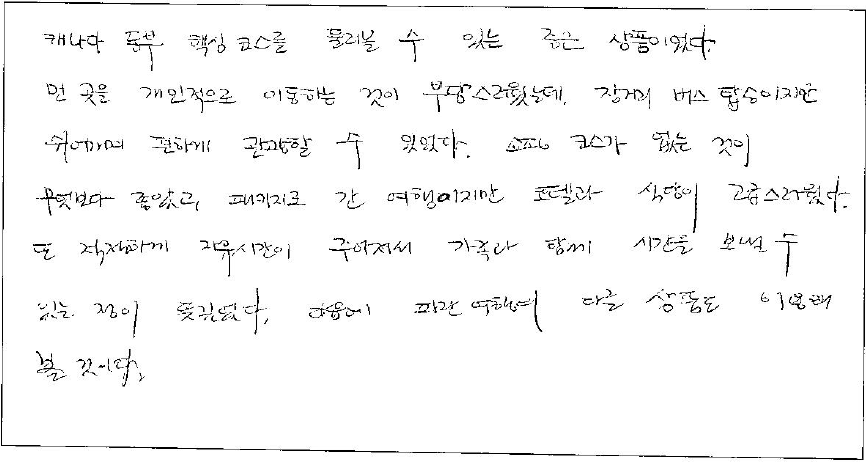 캐나다 동부 핵심 코스를 둘러볼 수 있는 좋은 상품이었다.
먼 곳을 개인적으로 이동하는 것이 부담스러웠는데, 장거리 버스 탑승이지만
쉬어가며 편하게 관광할 수 있었다. 쇼핑 코스가 없는 것이
무엇보다 좋았고, 패키지로 간 여행이지만 호텔과 식당이 고급스러웠다.
또 적절하게 자유시간이 주어져서 가족과 함께 시간을 보낼 수
있는 점이 뜻깊었다. 다음에 파란 여행의 다른 상품도 이용해
볼 것이다.